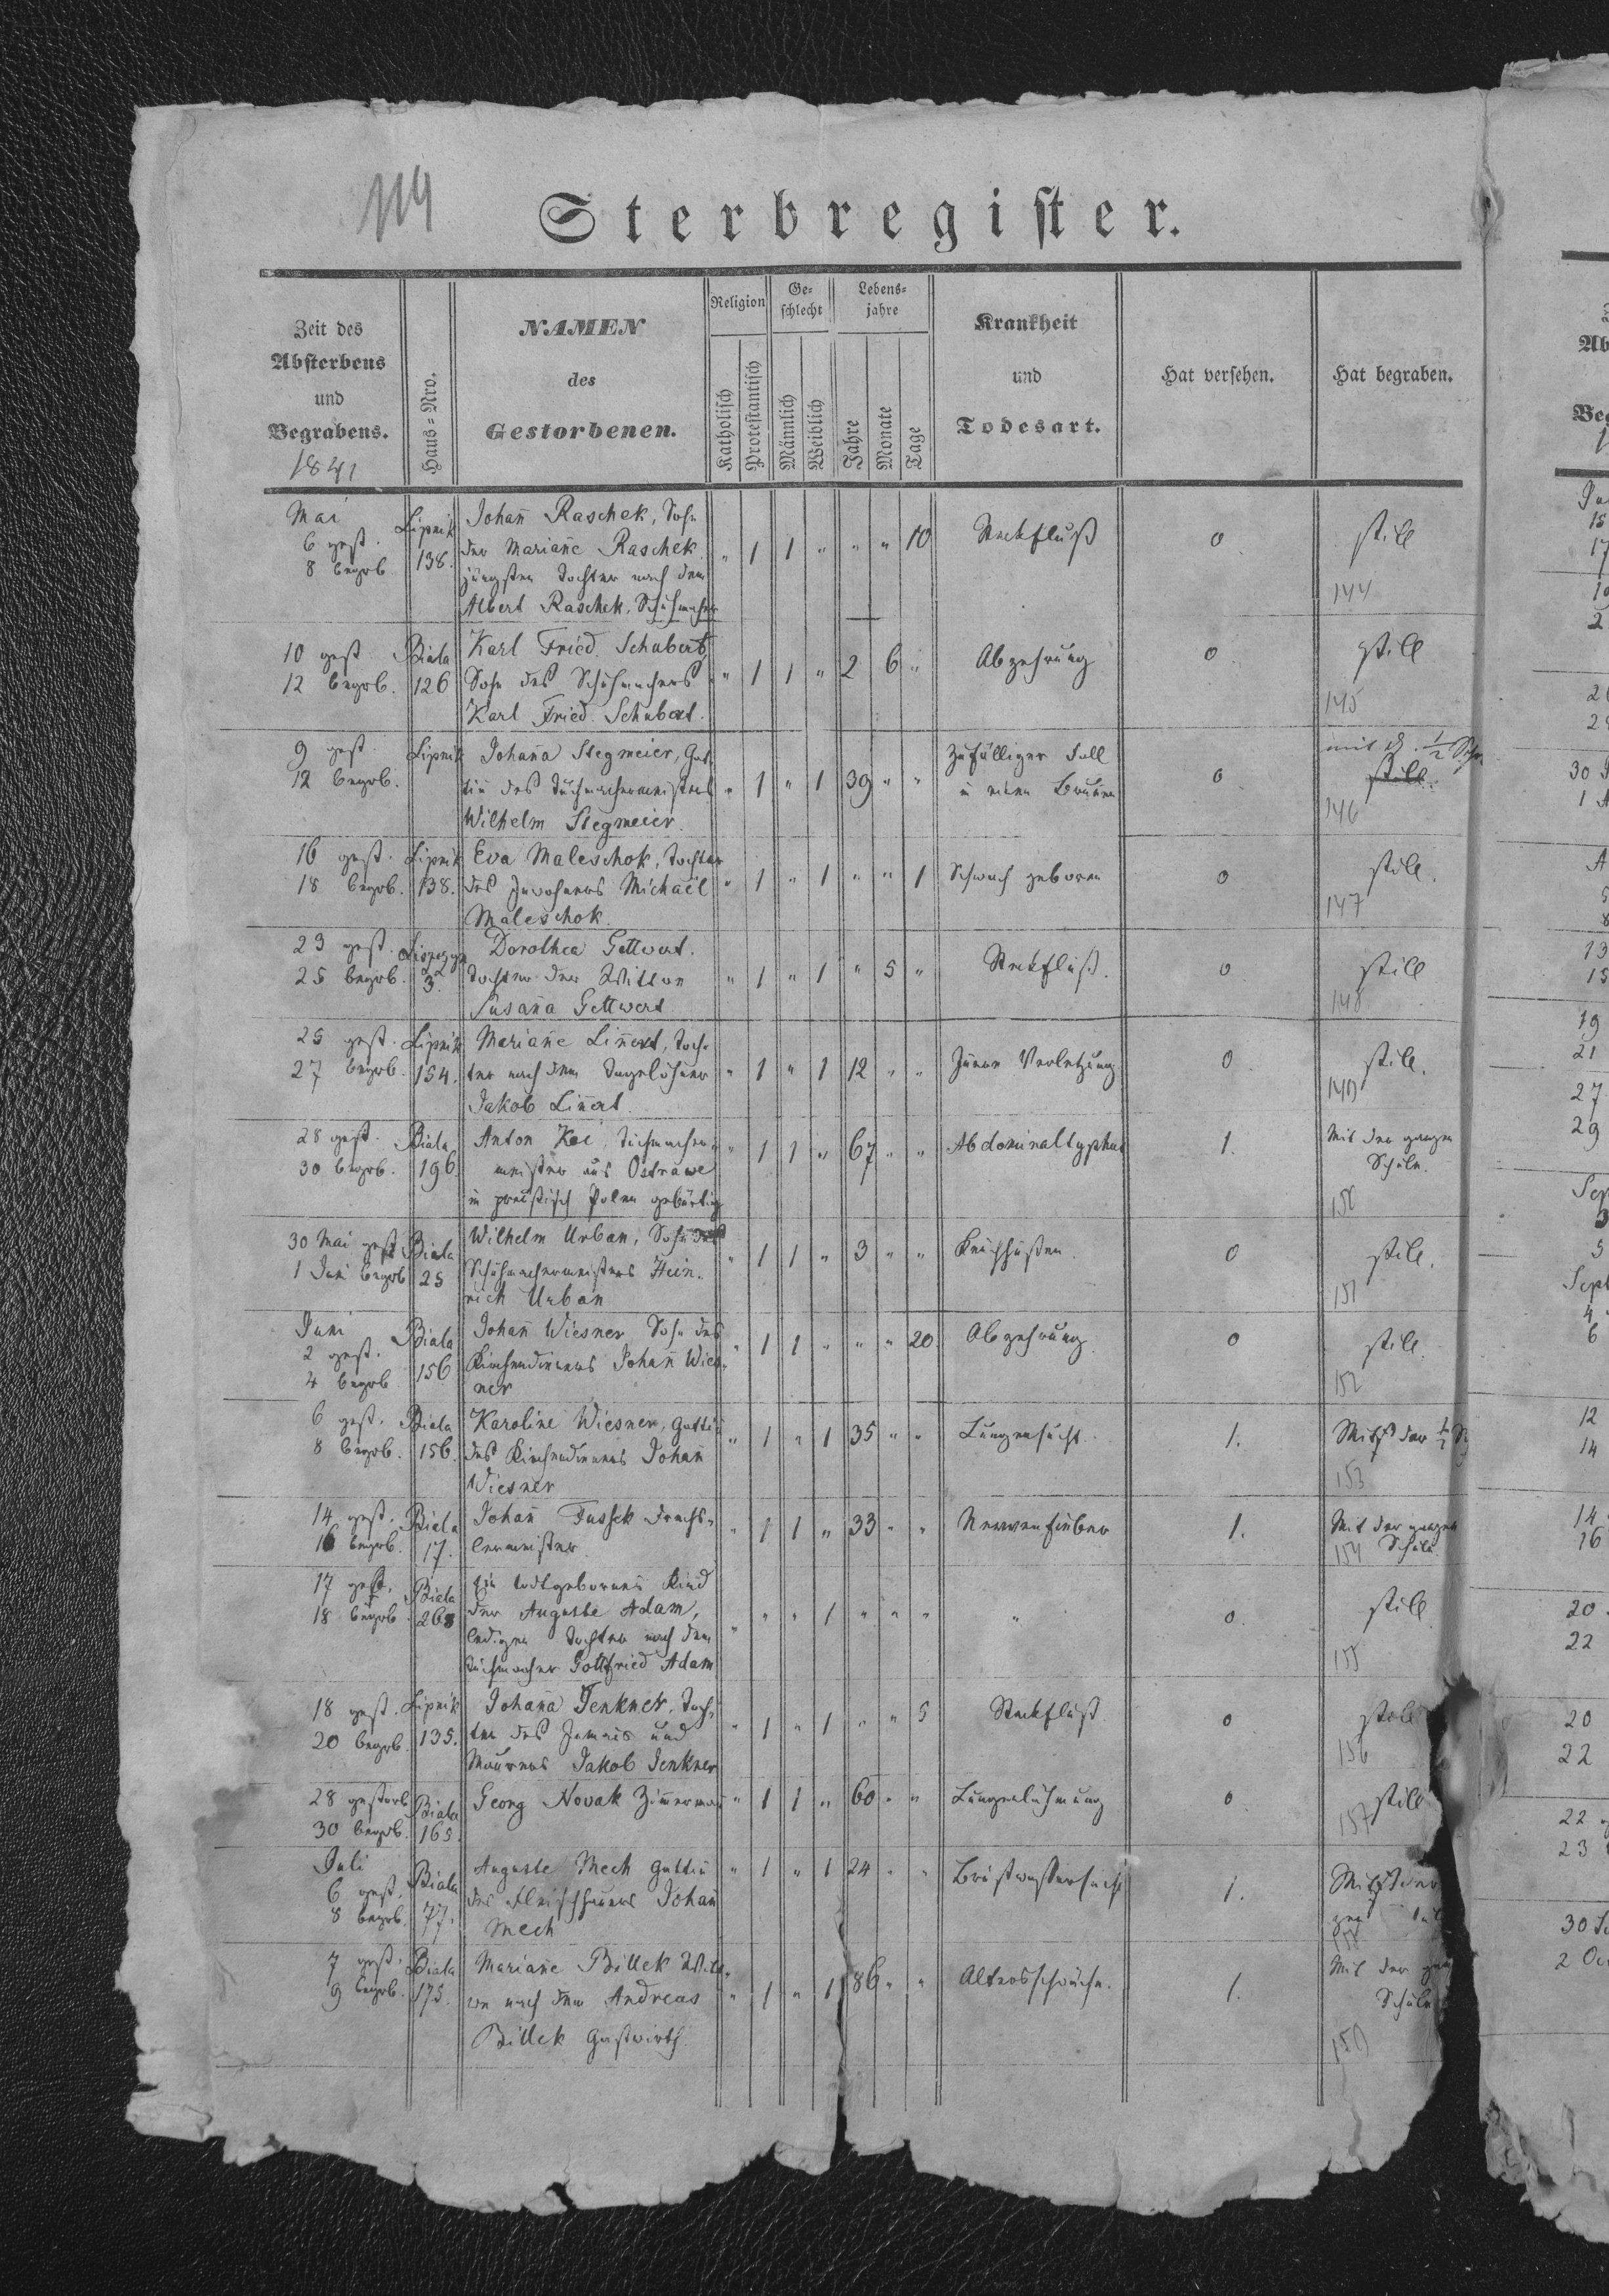 114
Sterbregister.
Zeit des Absterbens und Begrabens. 1841
Haus-Nro.
NAMEN des Gestorbenen.
Religion
Katholisch
Protestantisch
Geschlecht
Männlich
Weiblich
Lebensjahre
Jahre
Monate
Tage
Krankheit und Todesart.
Hat versehen.
Hat begraben.
Mai Lipnik Johañ Raschek, Sohn
6 gest. 138. der Mariañe Raschek " 1 1 " " " 10 Steckfluß 0 still
8 begrb jüngsten Tochter nach dem
Albert Raschek, Schuhmacher 144
10 gest Biala Karl Fried. Schubert
12 begrb. 126 Sohn des Schuhmachers " 1 1 " 2 6 " Abzehrung 0 still
Karl Fried. Schubert. 145
9 gest. Lipnik Johaña Stegmeier, Gat- Zufälliger Fall mit d. 1/2 Schu
12 begrb. tin des Tuchmachermeisters " 1 " 1 39 " " in einen Bruñen 0 still.
Wilhelm Stegmeier. 146
16 gest. Lipnik Eva Maleschok, Tochter
18 begrb. 138. des Inwohners Michael " 1 " 1 " " 1 Schwach geboren 0 still.
Maleschok. 147
23 gest. Dorothea Gettwert.
25 begrb. Tochter der Wittwe " 1 " 1 " 5 " Steckfluß. 0 still
Susaña Gettwert 148
25 gest. Lipnik Mariañe Liñert, Toch-
27 begrb. 154. ter nach dem Tagelöhner " 1 " 1 12 " " Iñere Verletzung 0 still.
Jakob Liñert. 149
28 gest. Biala Anton Koi, Tuchmacher-
30 begrb. 196. meister aus Ostrawe " 1 1 " 67 " " Abdominaltyphus 1. Mit der ganzen Schule.
in preußisch Polen gebürtig 150
30 Mai gest Biala Wilhelm Urban, Sohn des
1 Juni begrb 25 Schuhmachermeisters Hein- " 1 1 " 3 " " Keuchhusten 0 still.
rich Urban 151
Juni Biala Johañ Wiesner Sohn des
2 gest. 156 Kirchendieners Johañ Wies- " 1 1 " " " 20. Abzehrung 0 still.
4 begrb ner 152
6 gest. Biala Karoline Wiesner, Gattin
8 begrb. 156. des Kirchendieners Johañ " 1 " 1 35 " " Lungensucht. 1. Mit der 1/2
Wiesner 153
14 gest. Biala Johañ Fussek Drechs-
16 begrb. 17. lermeister " 1 1 " 33 " " Nervenfieber 1. Mit der ganzen Schule
154
17 gest. Biala Ein todtgebornes Kind
18 begrb 268 der Auguste Adam, " " " 1 " " " " 0. still
ledigen Tochter nach dem
Tuchmacher Gottfried Adam 155
18 gest. Lipnik Johaña Jenkner, Toch-
20 begrb. 135. ter des und " 1 " 1 " " 5 Steckfluß 0 still
Maurers Jakob Jenkner 156
28 gestorb Biala Georg Novak Zim̃erman " 1 1 " 60 " " Lungenlähmung 0 still
30 begrb. 165. 157
Juli Biala Auguste Mech Gattin " 1 " 1 24 " " Brustwassersucht 1. Mit der
6 gest. 77. des Fleischhauers Johañ
8 begrb. Mech
7 gest. Biala Mariañe Billek Witt- Mit der
9 begrb. 175. we nach dem Andreas " 1 " 1 86 " " Altersschwäche. 1. Schule
Billek Gastwirth. 159